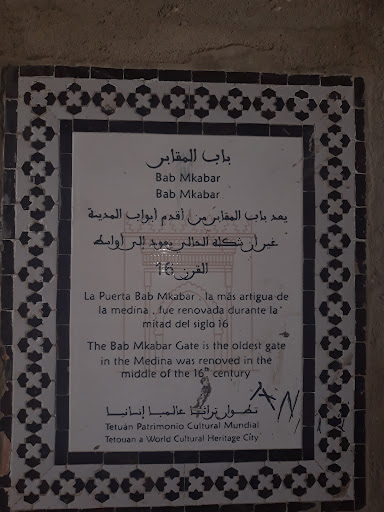 باب المقابر
Bab Mkabar
Bab Mkabar
يعد باب المقابر من أقدم أبواب المدينة
غير أن شكله الحالي يعود إلى أواسط
القرن 16
La Puerta Bab Mkabar , la màs artigua de
la medina , fue renovada durante la
mitad del siglo 16
The Bab Mkabar Gate is the oldest gate
in the Medina was renoved in the
middle of the 16th century
تطوان تراثا عالميا إنسانيا
Tetuán Patrimonio Cultural Mundial
Tetouan a World Cultural Heritage City